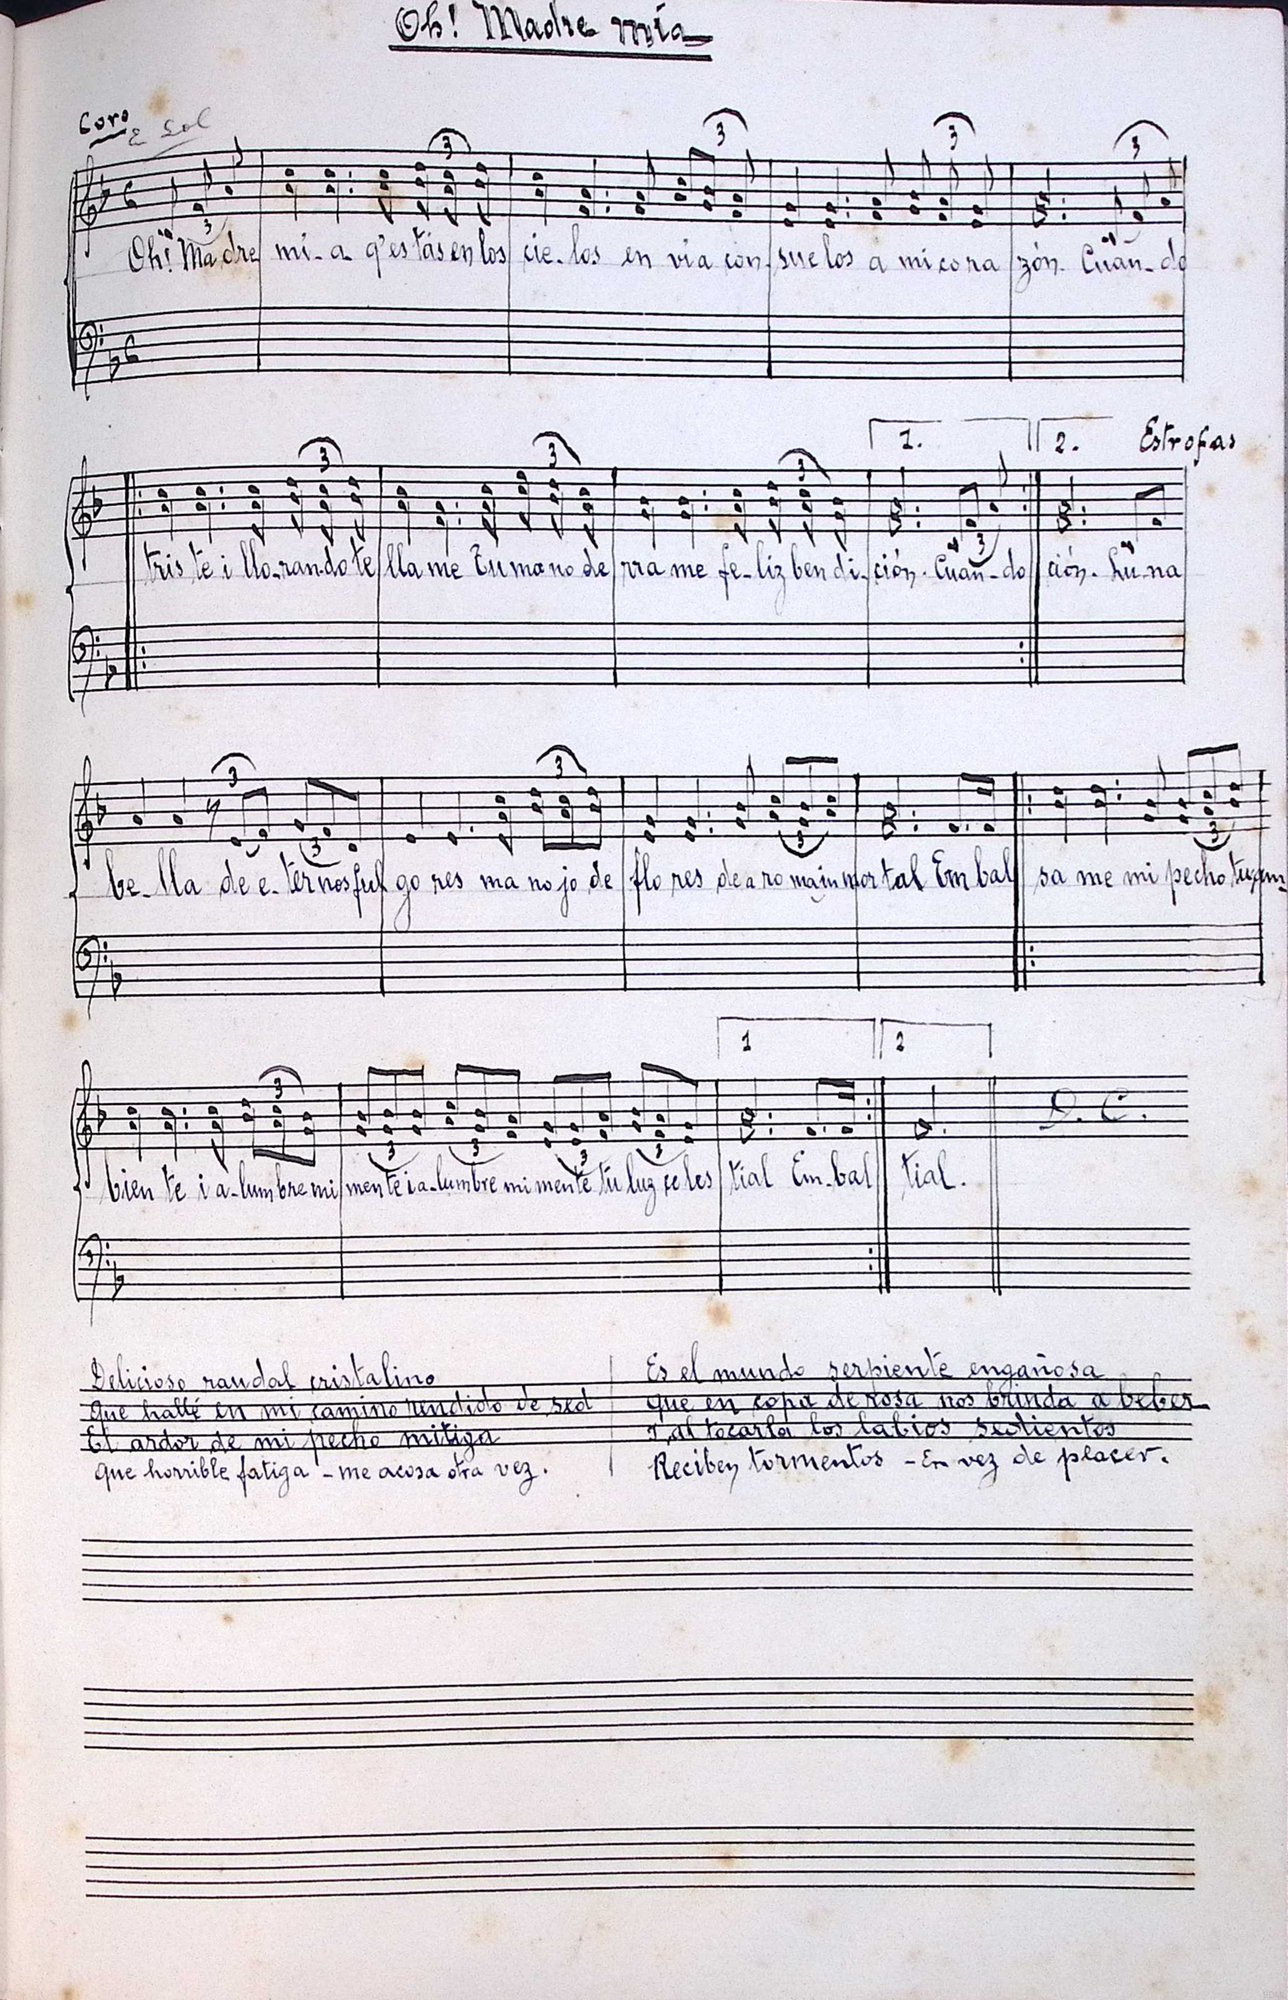 Oh! Madre mía
Coro
E Sol
3 3 3 3
3
Oh! Madre mi-a q'estás en los cie-los en vía con-suelos a mi co ra zón. Cuan-do
1. 2. Estrofas
3 3 3
3
tris te i llo-ran-do te lla me Tu mano de rra me fe-liz ben di-ción. Cuan-do ción. Lu-na
3 3
3 3 3
be-lla de e-ternos ful go res ma no jo de flo res de a ro ma in mor tal Em bal sa me mi pecho tu am-
1 2
3
D. C.
3 3 3 3
bien te i a-lum bre mi mente i a-lumbre mi mente tu luz ce les tial Em-bal tial.
Delicioso raudal cristalino
Que hallé en mi camino rendido de sed
El ardor de mi pecho mitiga
Que horrible fatiga - me acosa otra vez.
Es el mundo serpiente engañosa
Que en copa de rosa nos brinda a beber
I al tocarla los labios sedientos
Reciben tormentos - En vez de placer.